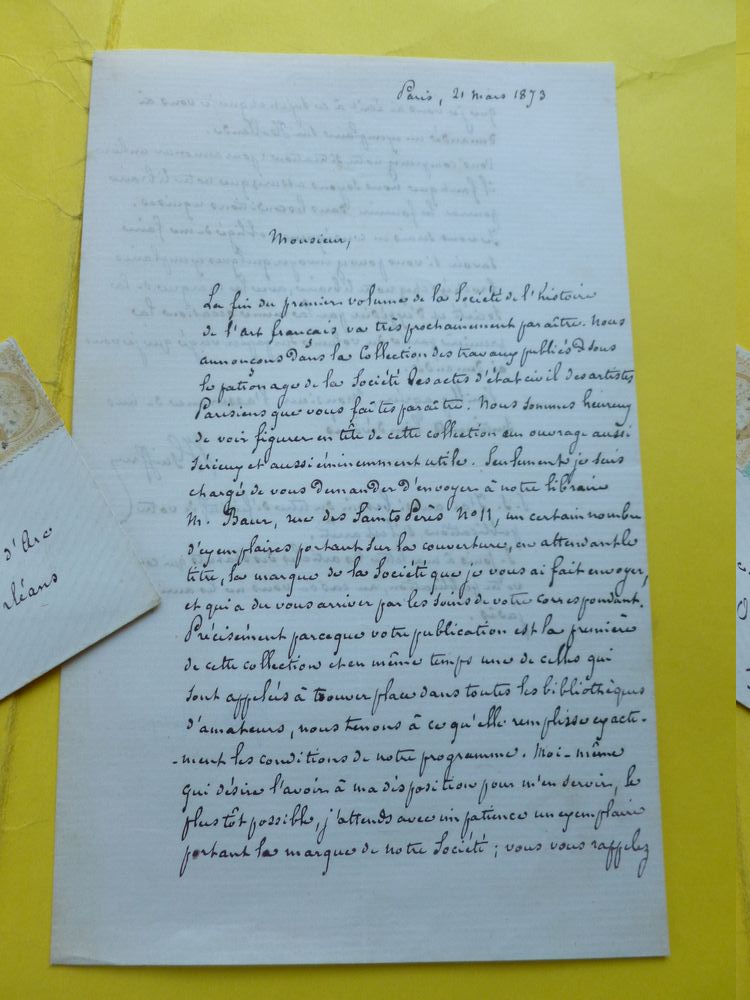 Paris, 21 mars 1873
Monsieur,
La fin du premier volume de la Société de l'histoire
de l'art français va très prochainement paraître. Nous
annonçons dans la Collection des travaux publiés sous
le patronage de la Société les actes d'état civil des artistes
Parisiens que vous faites paraître. Nous sommes heureux
de voir figurer en tête de cette collection un ouvrage aussi
sérieux et aussi éminemment utile. Seulement je suis
chargé de vous demander d'envoyer à notre libraire
M. Baur, rue des Saints Pères No 11, un certain nombre
d'exemplaires portant sur la couverture, en attendant le
titre, la marque de la Société que je vous ai fait envoyer,
et qui a du vous arriver par les soins de votre correspondant.
Précisément parceque votre publication est la première
de cette collection et en même temps une de celles qui
sont appelées à trouver place dans toutes les bibliothèques
d'amateurs, nous tenons à ce qu'elle remplisse exacte-
-ment les conditions de notre programme. Moi-même
qui désire l'avoir à ma disposition pour m'en servir, le
plus tôt possible, j'attends avec impatience un exemplaire
portant la marque de notre Société ; vous vous rappelez
d'Arc
rléans